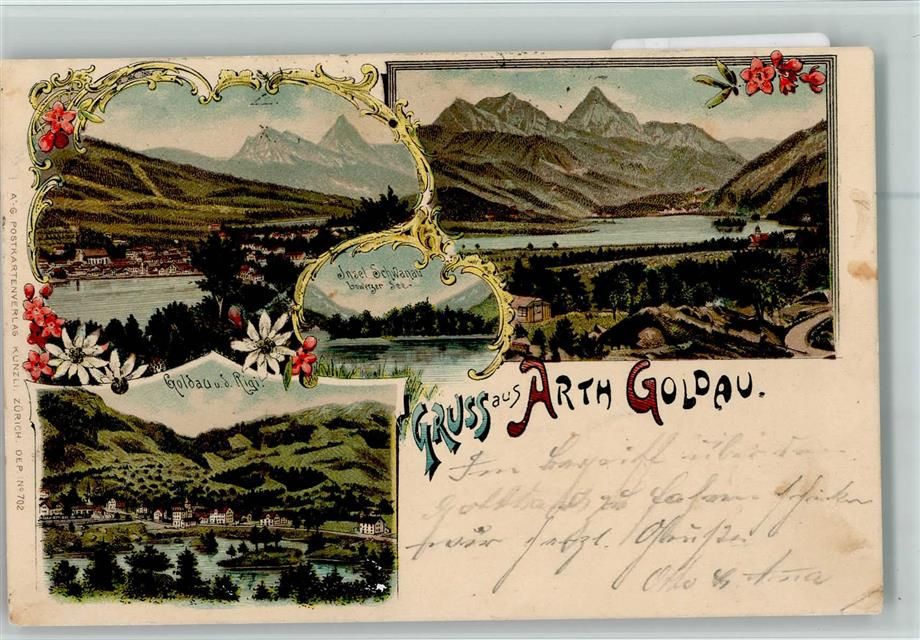 Insel Schwanau
lowerzer See.
Goldau u. d. Rigi.
GRUSS aus ARTH GOLDAU.
A.-G. POSTKARTENVERLAG KÜNZLI, ZÜRICH. DEP. No 702
Im Begriff über den
zu fahren schicken
wir herzl. Grüsse
Otto & Anna